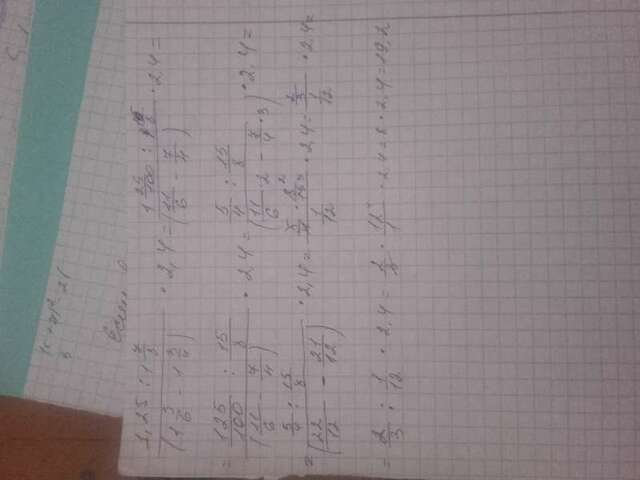 1,25 : 1 7/8 / (1 5/6 - 1 3/4) · 2,4 = 1 25/100 : 15/8 / (11/6 - 7/4) · 2,4 =
= 125/100 : 15/8 / (11/6 - 7/4) · 2,4 = 5/4 : 15/8 / (11/6 · 2 - 7/4 · 3) · 2,4 =
= 5/4 : 15/8 / (22/12 - 21/12) · 2,4 = 5/4 · 8/15 / 1/12 · 2,4 = 2/3 / 1/12 · 2,4 =
= 2/3 : 1/12 · 2,4 = 2/3 · 12/1 · 2,4 = 8 · 2,4 = 19,2